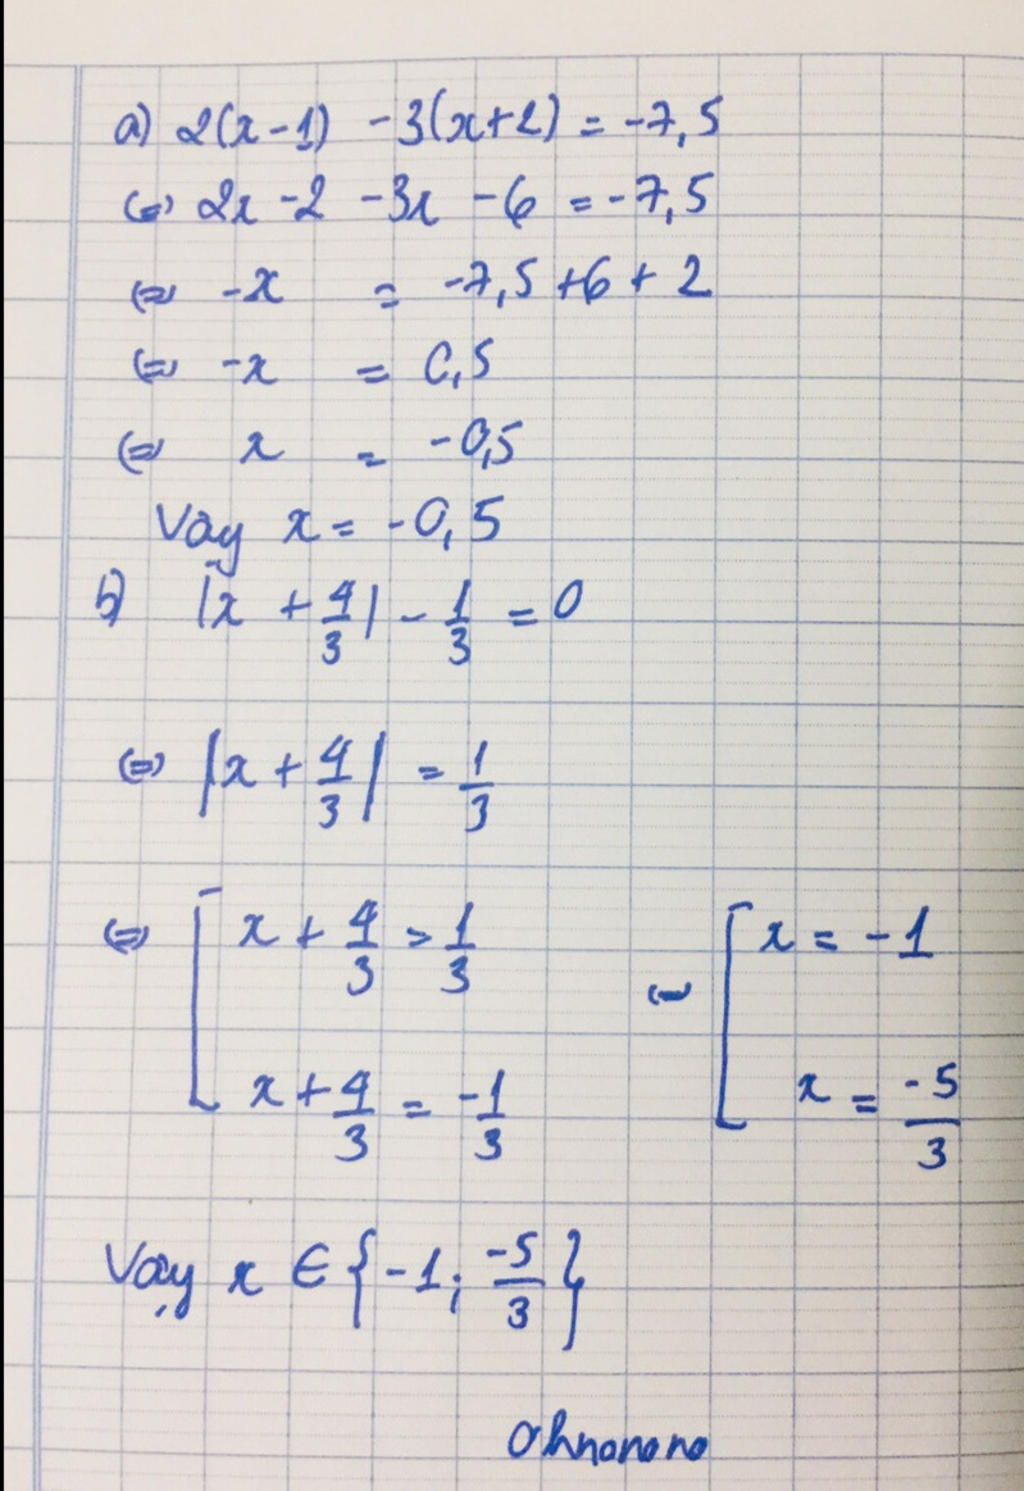 a) 2(x-1) -3(x+2) = -7,5
⇔ 2x -2 -3x -6 = -7,5
⇔ -x = -7,5 +6 + 2
⇔ -x = 0,5
⇔ x = -0,5
Vậy x = -0,5
b) |x + 4/3| - 1/3 = 0
⇔ |x + 4/3| = 1/3
⇔ [ x + 4/3 = 1/3 ⇔ [ x = -1
x + 4/3 = -1/3 x = -5/3
Vậy x ∈ {-1; -5/3}
Ohnonono